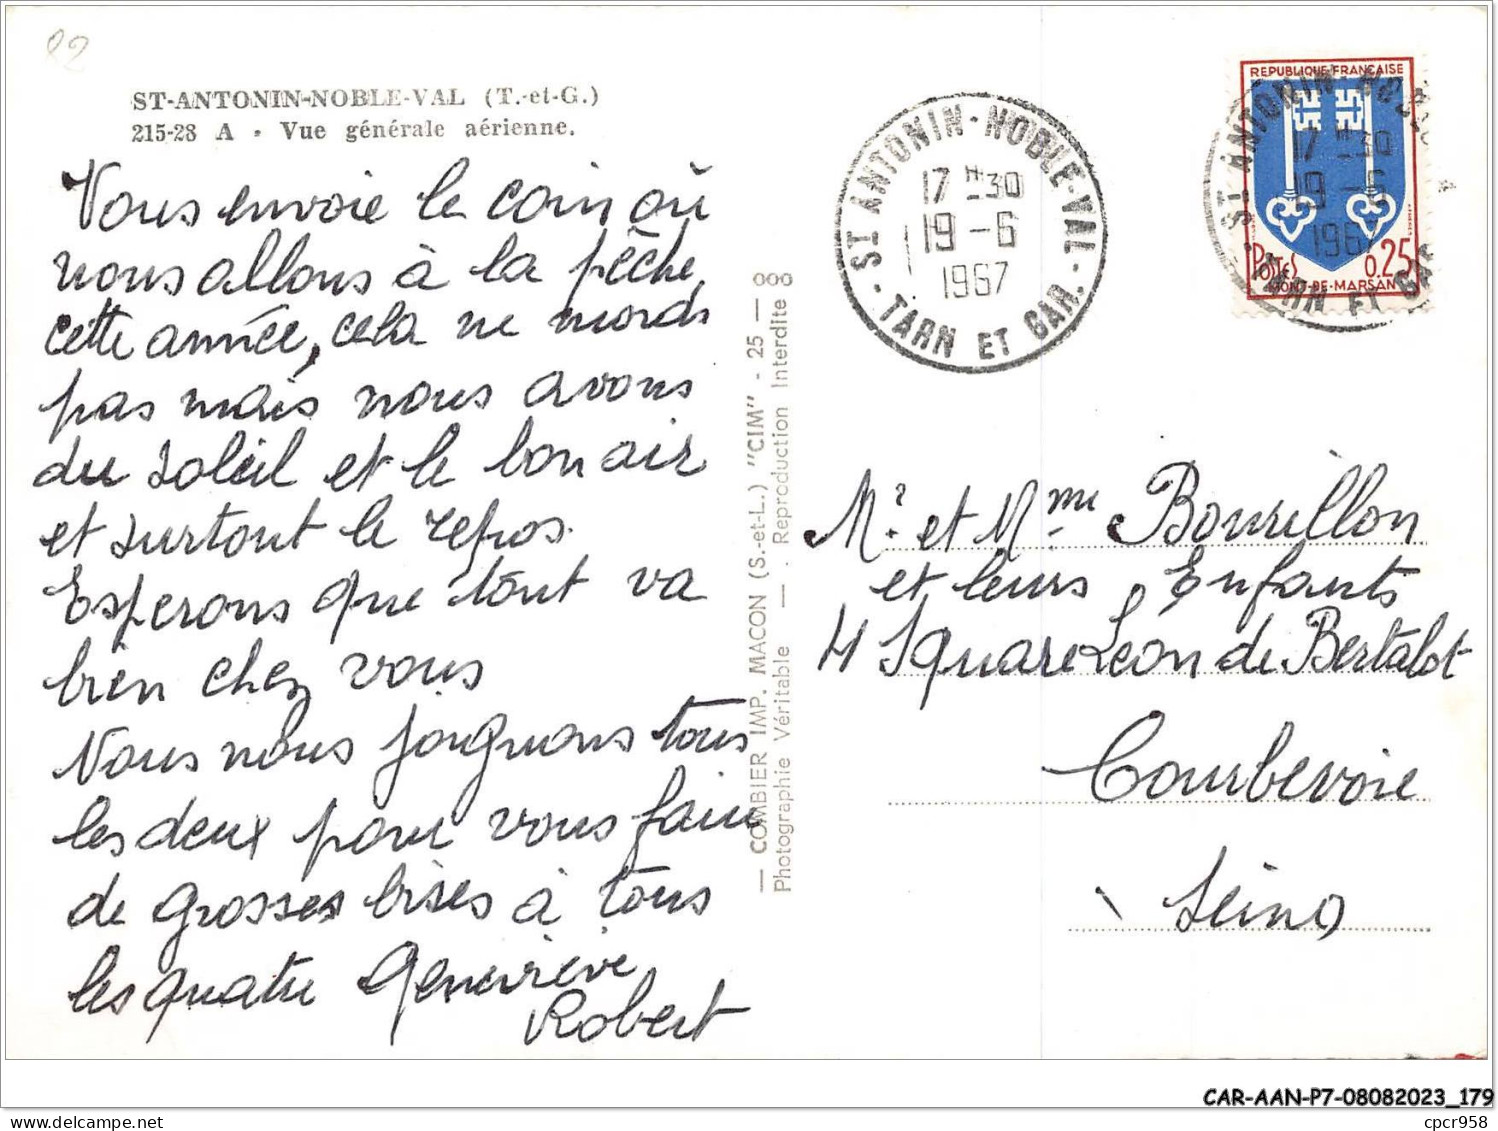 82
ST-ANTONIN-NOBLE-VAL (T.-et-G.)
215-28 A • Vue générale aérienne.
Vous envoie le coin où
nous allons à la pêche
cette année, cela ne mords
pas mais nous avons
du soleil et le bon air
et surtout le repos.
Esperons que tout va
bien chez vous
Nous nous joignons tous
les deux pour vous faire
de grosses bises à tous
les quatre Geneviève
Robert
— COMBIER IMP. MACON (S.-et-L.) "CIM" - 25 —
Photographie Véritable — . Reproduction Interdite
ST ANTONIN-NOBLE-VAL - TARN ET GAR. -
17 H 30
19 - 6
1967
REPUBLIQUE FRANÇAISE
POSTES 0.25
MONT-DE-MARSAN
ST ANTONIN-NOBLE
17 H 30
19 - 6
1967
TARN ET GAR
Mr. et Mme Bourillon
et leurs Enfants
4 Square Leon de Bertalot
Courbevoie
Seine
CAR-AAN-P7-08082023_179
cpcr958